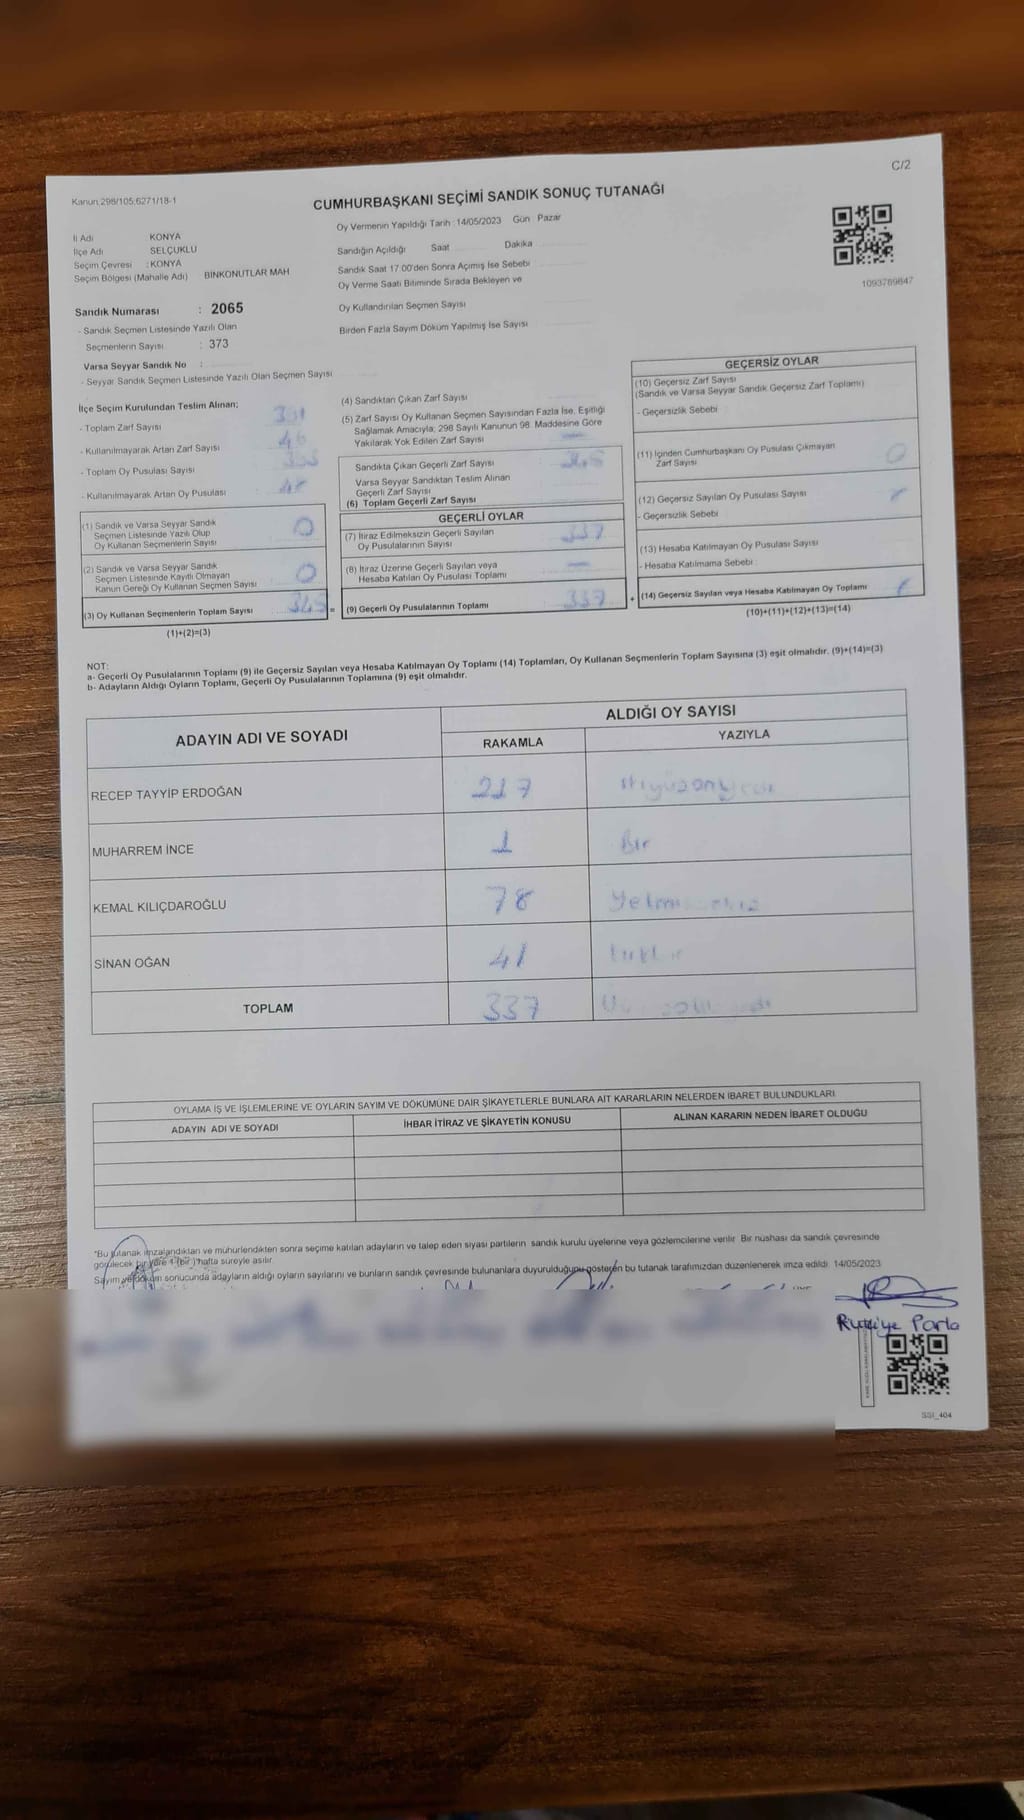 C/2
Kanun 298/105,6271/18-1
CUMHURBAŞKANI SEÇİMİ SANDIK SONUÇ TUTANAĞI
Oy Vermenin Yapıldığı Tarih : 14/05/2023 Gün Pazar
İl Adı KONYA
İlçe Adı SELÇUKLU
Seçim Çevresi : KONYA
Seçim Bölgesi (Mahalle Adı) BİNKONUTLAR MAH
Sandığın Açıldığı Saat Dakika
Sandık Saat 17.00'den Sonra Açımış İse Sebebi
Oy Verme Saati Bitiminde Sırada Bekleyen ve
Oy Kullandırılan Seçmen Sayısı
Birden Fazla Sayım Döküm Yapılmış İse Sayısı
1093789847
Sandık Numarası : 2065
- Sandık Seçmen Listesinde Yazılı Olan
Seçmenlerin Sayısı : 373
Varsa Seyyar Sandık No :
- Seyyar Sandık Seçmen Listesinde Yazılı Olan Seçmen Sayısı
İlçe Seçim Kurulundan Teslim Alınan;
- Toplam Zarf Sayısı
- Kullanılmayarak Artan Zarf Sayısı
- Toplam Oy Pusulası Sayısı
- Kullanılmayarak Artan Oy Pusulası
(1) Sandık ve Varsa Seyyar Sandık
Seçmen Listesinde Yazılı Olup
Oy Kullanan Seçmenlerin Sayısı 0
(2) Sandık ve Varsa Seyyar Sandık
Seçmen Listesinde Kayıtlı Olmayan
Kanun Gereği Oy Kullanan Seçmen Sayısı 0
(3) Oy Kullanan Seçmenlerin Toplam Sayısı 345 =
(1)+(2)=(3)
(4) Sandıktan Çıkan Zarf Sayısı
(5) Zarf Sayısı Oy Kullanan Seçmen Sayısından Fazla İse, Eşitliği
Sağlamak Amacıyla; 298 Sayılı Kanunun 98. Maddesine Göre
Yakılarak Yok Edilen Zarf Sayısı —
Sandıkta Çıkan Geçerli Zarf Sayısı 345
Varsa Seyyar Sandıktan Teslim Alınan
Geçerli Zarf Sayısı
(6) Toplam Geçerli Zarf Sayısı
GEÇERLİ OYLAR
(7) İtiraz Edilmeksizin Geçerli Sayılan
Oy Pusulalarının Sayısı 337
(8) İtiraz Üzerine Geçerli Sayılan veya
Hesaba Katılan Oy Pusulası Toplamı —
(9) Geçerli Oy Pusulalarının Toplamı 337 +
GEÇERSİZ OYLAR
(10) Geçersiz Zarf Sayısı
(Sandık ve Varsa Seyyar Sandık Geçersiz Zarf Toplamı)
- Geçersizlik Sebebi
(11) İçinden Cumhurbaşkanı Oy Pusulası Çıkmayan
Zarf Sayısı 0
(12) Geçersiz Sayılan Oy Pusulası Sayısı
- Geçersizlik Sebebi
(13) Hesaba Katılmayan Oy Pusulası Sayısı
- Hesaba Katılmama Sebebi
(14) Geçersiz Sayılan veya Hesaba Katılmayan Oy Toplamı
(10)+(11)+(12)+(13)=(14)
NOT:
a- Geçerli Oy Pusulalarının Toplamı (9) ile Geçersiz Sayılan veya Hesaba Katılmayan Oy Toplamı (14) Toplamları, Oy Kullanan Seçmenlerin Toplam Sayısına (3) eşit olmalıdır. (9)+(14)=(3)
b- Adayların Aldığı Oyların Toplamı, Geçerli Oy Pusulalarının Toplamına (9) eşit olmalıdır.
ADAYIN ADI VE SOYADI ALDIĞI OY SAYISI
RAKAMLA YAZIYLA
RECEP TAYYİP ERDOĞAN 217
MUHARREM İNCE 1 Bir
KEMAL KILIÇDAROĞLU 78
SİNAN OĞAN 41
TOPLAM 337
OYLAMA İŞ VE İŞLEMLERİNE VE OYLARIN SAYIM VE DÖKÜMÜNE DAİR ŞİKAYETLERLE BUNLARA AİT KARARLARIN NELERDEN İBARET BULUNDUKLARI
ADAYIN ADI VE SOYADI İHBAR İTİRAZ VE ŞİKAYETİN KONUSU ALINAN KARARIN NEDEN İBARET OLDUĞU
*Bu tutanak imzalandıktan ve mühürlendikten sonra seçime katılan adayların ve talep eden siyasi partilerin sandık kurulu üyelerine veya gözlemcilerine verilir. Bir nüshası da sandık çevresinde
görülecek bir yere 1 (bir) hafta süreyle asılır.
Sayım ve döküm sonucunda adayların aldığı oyların sayılarını ve bunların sandık çevresinde bulunanlara duyurulduğunu gösteren bu tutanak tarafımızdan düzenlenerek imza edildi. 14/05/2023
Parla
SSI_404